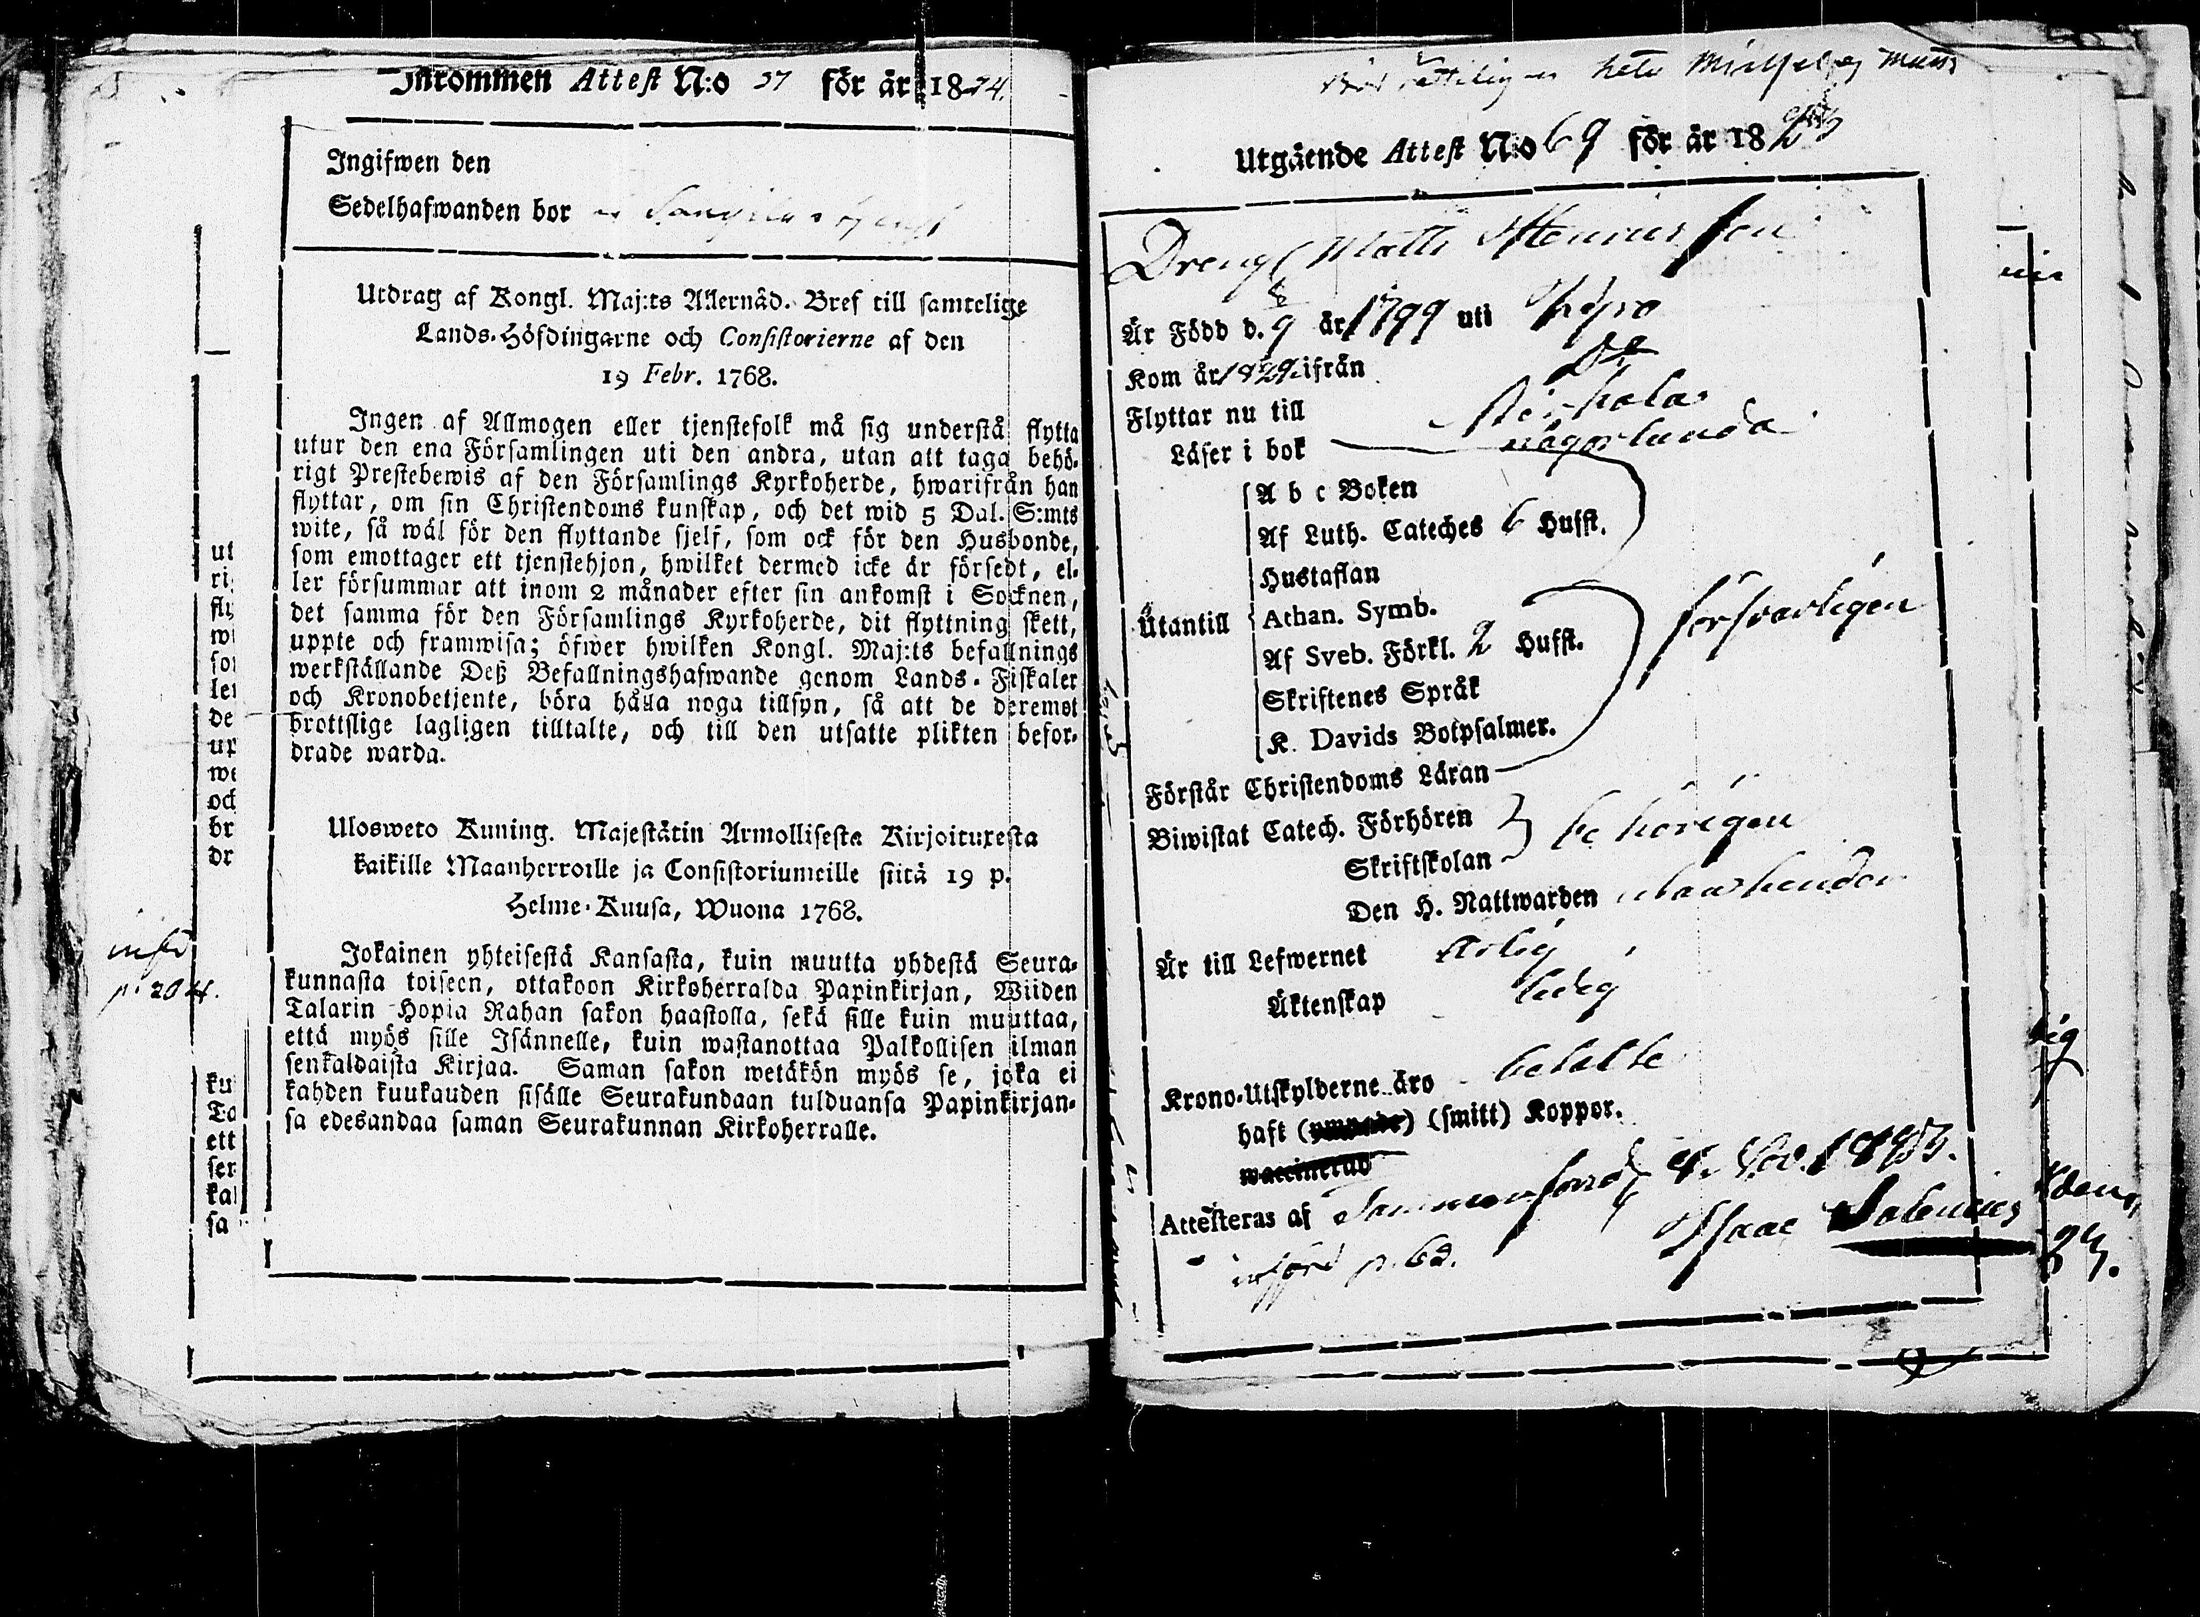 Inkommen Attest N:o 27 för år 1824.
Ingifwen den
Sedelhafwanden bor
Utdrag af Kongl. Maj:ts Allernåd. Bref till samtelige
Lands-Höfdingarne och Consistorierne af den
19 Febr. 1768.
Ingen af Allmogen eller tjenstefolk må sig understå flytta
utur den ena Församlingen uti den andra, utan att taga behö-
rigt Prestebewis af den Församlings Kyrkoherde, hwarifrån han
flyttar, om sin Christendoms kunskap, och det wid 5 Dal. S:mts
wite, så wäl för den flyttande sjelf, som ock för den Husbonde,
som emottager ett tjenstehjon, hwilket dermed icke är försedt, el-
ler försummar att inom 2 månader efter sin ankomst i Socknen,
det samma för den Församlings Kyrkoherde, dit flyttning skett,
uppte och framwisa; öfwer hwilken Kongl. Maj:ts befallnings
werkställande Deß Befallningshafwande genom Lands-Fiskaler
och Kronobetjente, böra hålla noga tillsyn, så att de deremot
brottslige lagligen tilltalte, och till den utsatte plikten befor-
drade warda.
Ulosweto Kuning. Majestätin Armollisesta Kirjoituxesta
kaikille Maanherroille ja Consistoriumeille siitä 19 p.
Helme-Kuusa, Wuona 1768.
Jokainen yhteisestä Kansasta, kuin muutta yhdestä Seura-
kunnasta toiseen, ottakoon Kirkoherralda Papinkirjan, Wiiden
Talarin Hopia Rahan sakon haastolla, sekä sille kuin muuttaa,
että myös sille Isännelle, kuin wastanottaa Palkollisen ilman
senkaldaista Kirjaa. Saman sakon wetäkön myös se, joka ei
kahden kuukauden sisälle Seurakundaan tulduansa Papinkirjan-
sa edesandaa saman Seurakunnan Kirkoherralle.
p. 204.
ut
ri
fly
wi
so
le
de
up
we
och
br
dr
ku
Ta
ett
sen
ka
sa
Utgående Attest N:o 69 för år 1823
Dreng Matts Henricsson
Är Född d. 9 år 1799 uti Kyro
Kom år ifrån
Flyttar nu till
Läser i bok någorlunda
A b c Boken
Af Luth. Cateches 6 Hufst.
Hustaflan
Utantill
Athan. Symb.
Af Sveb. Förkl. 2 Hufst. försvarligen
Skriftenes Språk
K. Davids Botpsalmer.
Förstår Christendoms Läran
Biwistat Catech. Förhören behörigen
Skriftskolan
Den H. Nattwarden
Är till Lefwernet ärlig
Äktenskap ledig
Krono-Utskylderne äro betalte
haft (smitt) Koppor.
Attesteras af 4. Nov. 1823.
Isaac Salenius
införd p. 62.